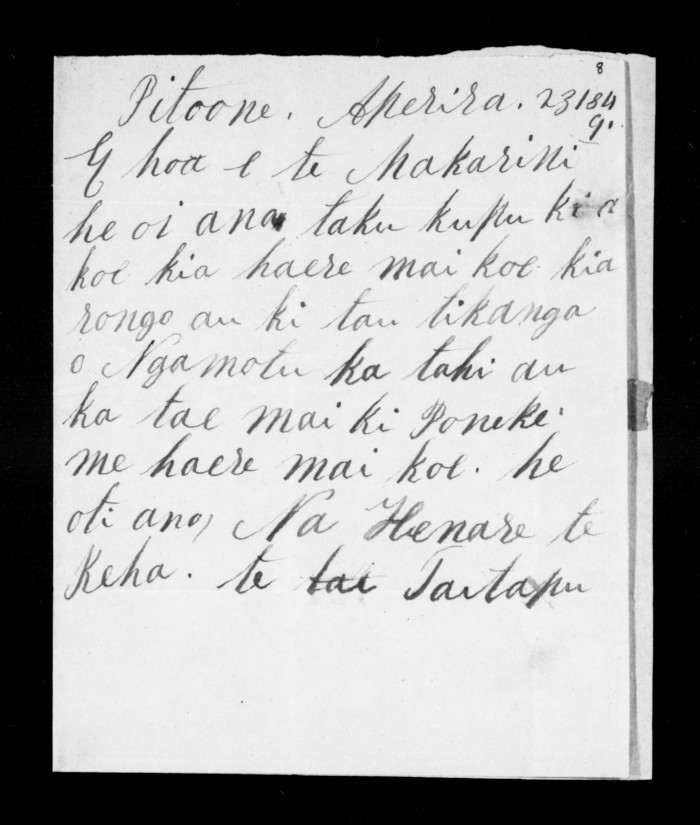 8
Pitoone. Aperira. 23 184
9.
E hoa e te Makarini
he oi ana taku kupu kia
koe kia haere mai koe kia
rongo au ki tau tikanga
o Ngamotu ka tahi au
ka tae mai ki Poneke.
me haere mai koe. he
oti ano, Na Henare te
Keha. te tai Taitapu